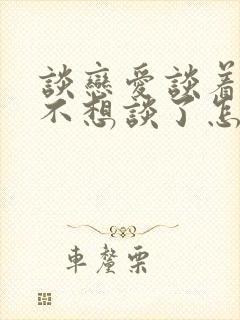 談戀愛談着
不想談了怎
車釐栗